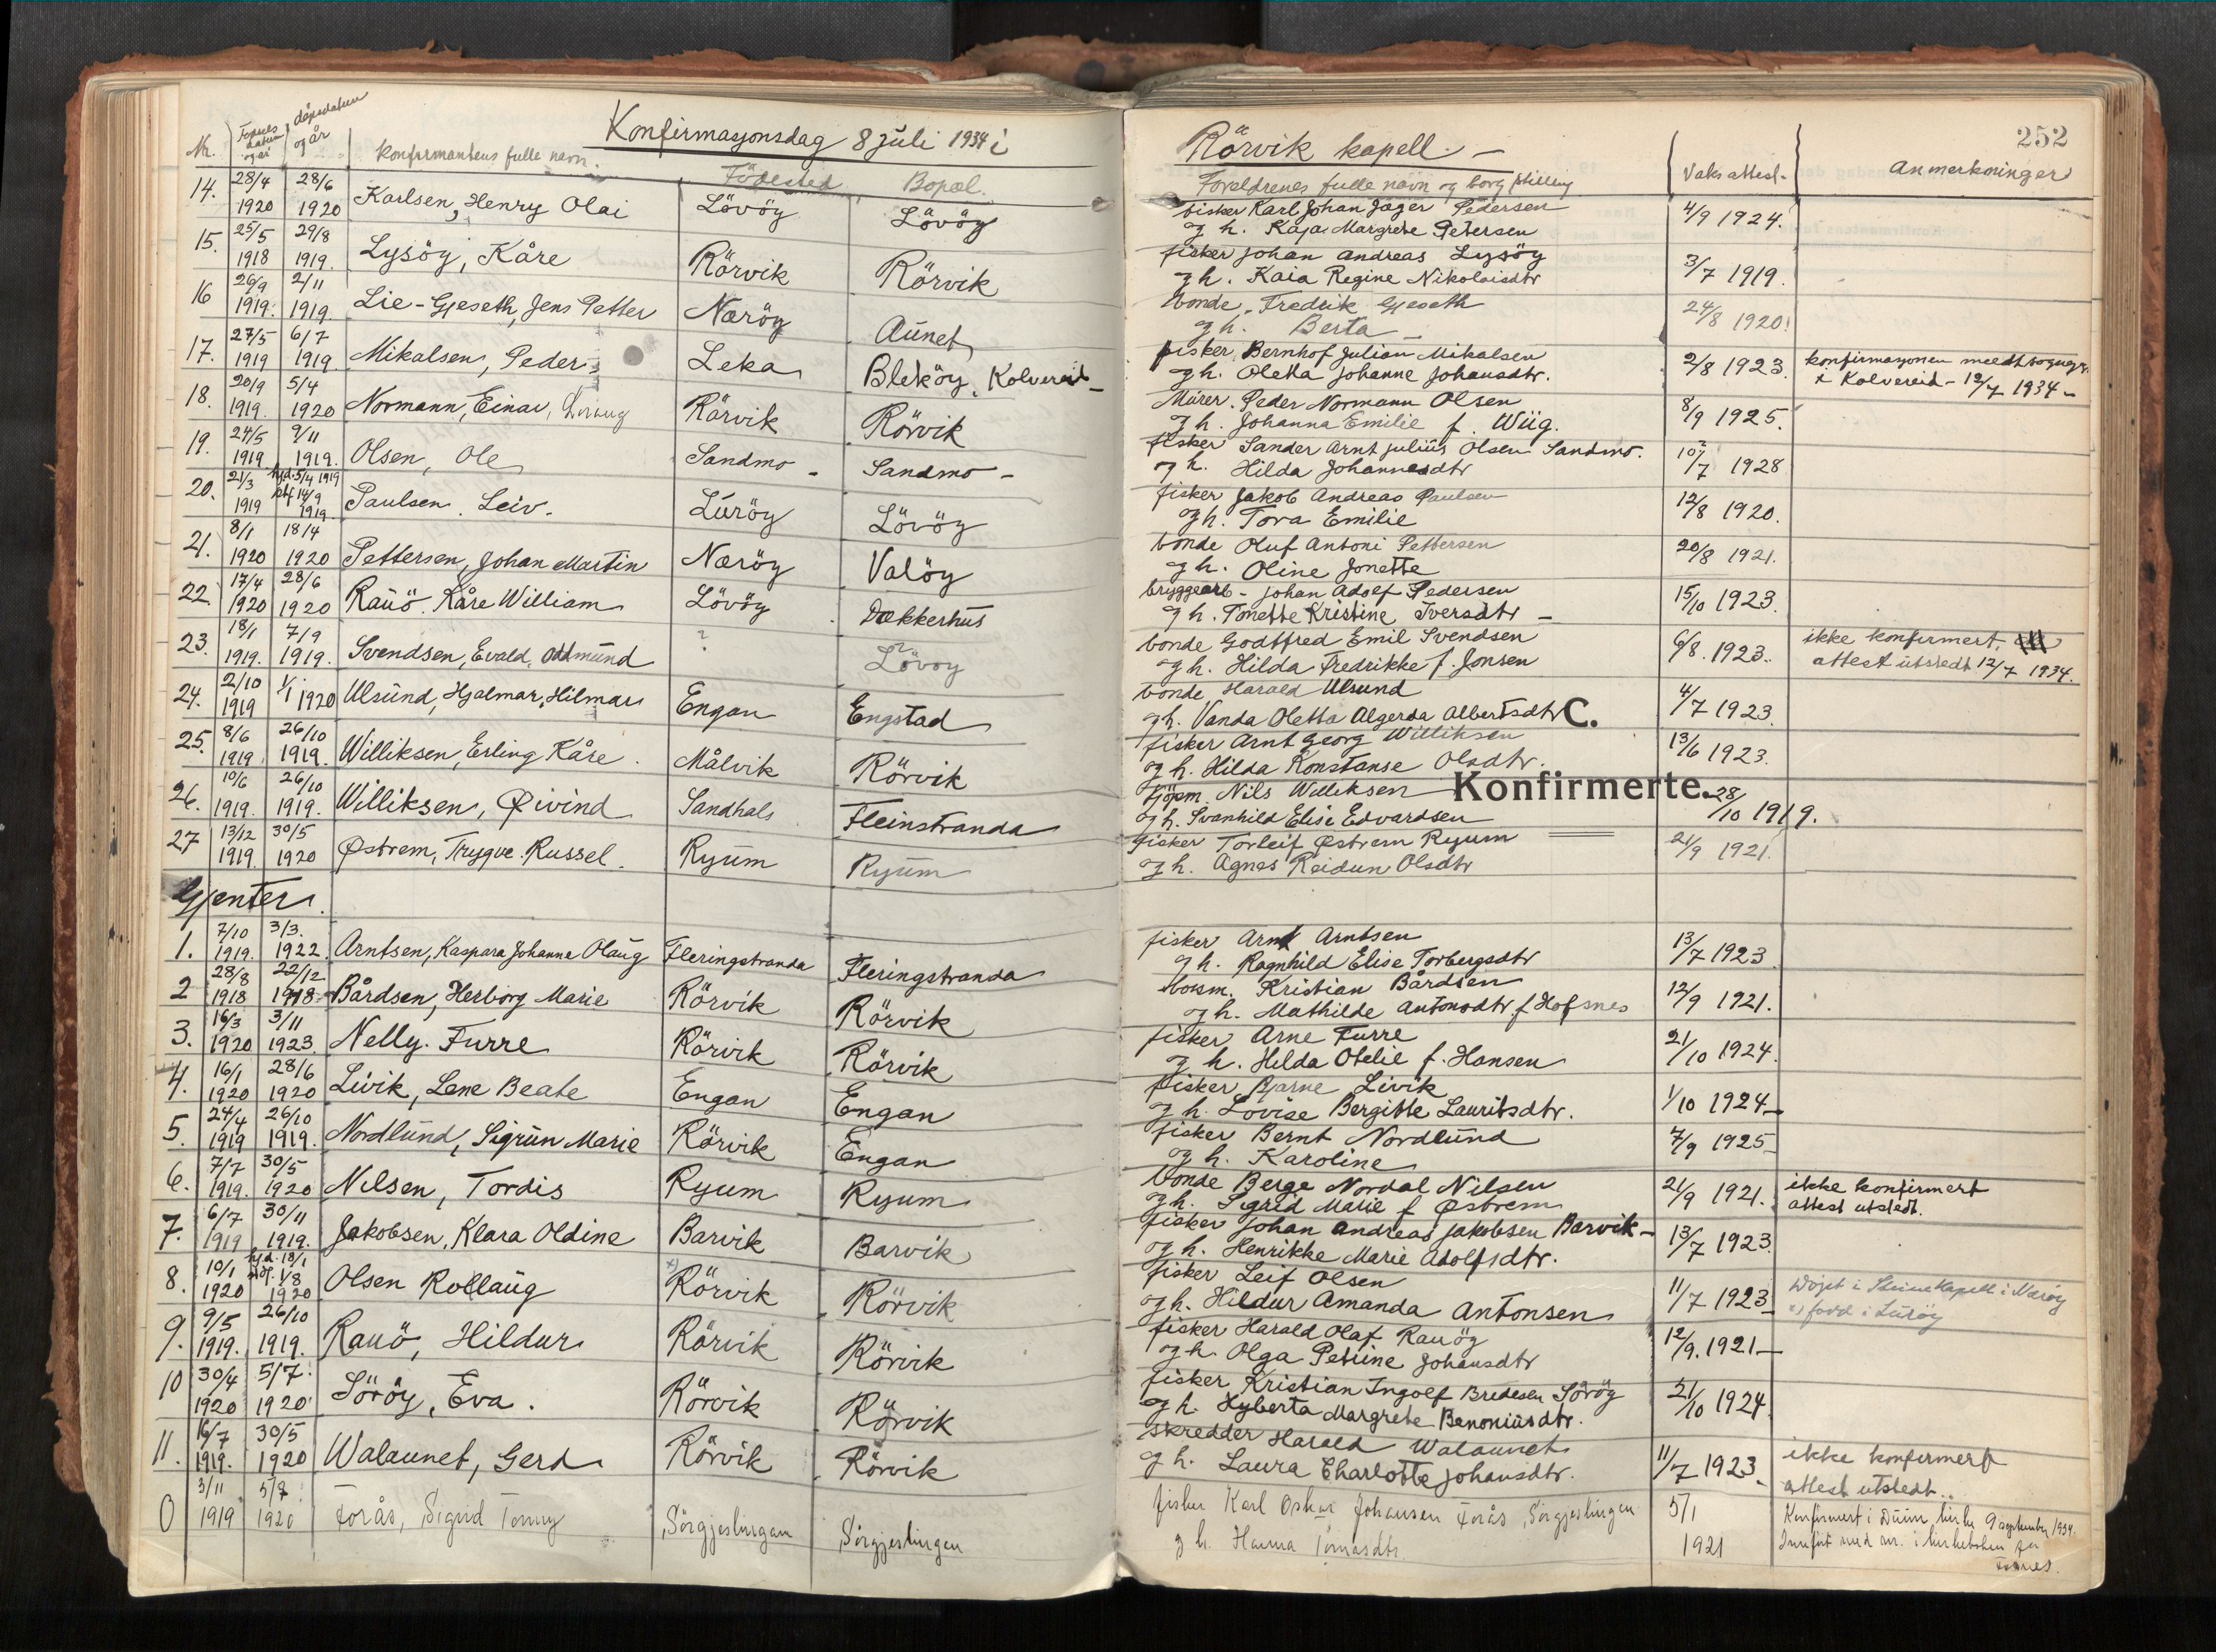 Konfirmasjonsdag 8 juli 1934 i Rörvik kapell. —
252
Nr. Fødsels datum og år dåpsdatum og år konfirmantens fulle navn. Födested Bopæl. Foreldrenes fulle navn og borg stilling Vaks attest - Anmerkninger
14. 28/4 1920 28/6 1920 Karlsen, Henry Olai Lövöy Lövöy fisker Karl Johan Jäger Pedersen 4/9 1924.
og h. Kaja Margrete Petersen
15. 25/5 1918 29/8 1919. Lysöy, Kåre Rörvik Rörvik fisker Johan Andreas Lysöy 3/7 1919.
og h. Kaia Regine Nikolaisdtr
16 26/9 1919. 2/11 1919. Lie-Gjeseth, Jens Petter Næröy Aunet bonde, Fredrik Gjeseth 24/8 1920.
og h. Berta
17. 27/5 1919 6/7 1919. Mikalsen, Peder Leka Bleköy, Kolvereid - fisker Bernhof Julian Mikalsen 2/8 1923. konfirmasjonen meldt sognepr.
og h. Oletta Johanne Johansdtr. i Kolvereid - 12/7 1934 -
18. 20/9 1919. 5/4 1920 Normann, Einar, Rörvik Rörvik Mürer. Peder Normann Olsen 8/9 1925.
og h. Johanna Emilie f. Wiig.
19. 24/5 1919 9/11 1919. Olsen, Ole Sandmo - Sandmo - fisker Sander Arnt Julius Olsen Sandmo. 10/7 1928
og h. Hilda Johannesdtr
20. 21/3 1919 hjd. 5/4 1919 stf 14/9 1919. Paulsen. Leiv. Luröy Lövöy fisker Jakob Andreas Paulsen 12/8 1920.
og h. Tora Emilie
21. 8/1 1920 18/4 1920 Pettersen, Johan Martin Næröy Valöy bonde Oluf Antoni Pettersen 20/8 1921.
og h. Oline Jonette
22. 17/4 1920 28/6 1920 Rauö. Kåre William Lövöy Dækkerhus bryggearb - Johan Adolf Pedersen 15/10 1923.
og h. Tonette Kristine Iversdtr -
23. 18/1 1919. 7/9 1919. Svendsen, Evald, Oddmund ? Lövöy bonde Godtfred Emil Svendsen 6/8. 1923. ikke konfirmert,
og h. Hilda Fredrikke f. Jonsen attest utstedt 12/7 1934.
24. 2/10 1919 1/1 1920 Ulsund, Hjalmar, Hilmar Engan Engstad bonde Harald Ulsund 4/7 1923.
og h. Vanda Oletta Algerda Albertsdtr C.
25. 8/6 1919 26/10 1919. Williksen, Erling Kåre. Målvik Rörvik fisker Arnt Georg Williksen 13/6 1923.
og h. Hilda Konstanse Olsdtr.
26. 10/6 1919. 26/10 1919. Williksen, Øivind Sandhals Fleinstranda kjöpm. Nils Williksen Konfirmerte. 28/10 1919.
og h. Svanhild Elise Edvardsen
27 13/12 1919. 30/5 1920 Østrem, Trygve. Russel. Ryum Ryum fisker Torleif Østrem Ryum 21/9 1921.
og h. Agnes Reidun Olsdtr
Gjenter.
1. 7/10 1919. 3/3. 1922. Arntsen, Kaspara Johanne Olaug Fleringstranda Fleringstranda fisker Arnt Arntsen 13/7 1923
og h. Ragnhild Elise Torbergsdtr
2 28/8 1918 22/12 1918 Bårdsen, Herborg Marie Rörvik Rörvik Kristian Bårdsen 12/9 1921.
og h. Mathilde Antonsdtr. f Hofsnes
3. 16/3 1920 3/11 1923. Nelly. Furre Rörvik Rörvik fisker Arne Furre 21/10 1924.
og h. Hilda Otelie f. Hansen
4. 16/1 1920 28/6 1920 Livik, Lene Beate Engan Engan fisker Bjarne Livik 1/10 1924 -
og h. Lovise Bergitte Lauritsdtr.
5. 24/4 1919 26/10 1919. Nordlund, Sigrun Marie Rörvik Engan fisker Bernt Nordlund 7/9 1925 -
og h. Karoline
6. 7/7 1919. 30/5 1920 Nilsen, Tordis Ryum Ryum bonde Berge Nordal Nilsen 21/9 1921. ikke konfirmert
og h. Sigrid Marie f Østrem attest utstedt.
7. 6/7 1919 30/11 1919. Jakobsen, Klara Oldine Barvik Barvik fisker Johan Andreas Jakobsen Barvik - 13/7 1923.
og h. Henrikke Marie Adolfsdtr.
8. 10/1 1920 hj.d. 18/1 stf. 1/8 1920 Olsen Rollaug x) Rörvik Rörvik fisker Leif Olsen 11/7 1923 - Döpt i Steine Kapell i Næröy
og h. Hildur Amanda Antonsen x) född i Luröy
9. 9/5 1919. 26/10 1919. Rauö, Hildur Rörvik Rörvik fisker Harald Olaf Rauöy 12/9. 1921 —
og h. Olga Petrine Johansdtr
10 30/4 1920 5/7. 1920 Söröy, Eva. Rörvik Rörvik fisker Kristian Ingolf Bredesen Söröy 21/10 1924.
og h. Hyberta Margrete Benoniusdtr.
11. 16/7 1919. 30/5 1920 Walaunet, Gerd Rörvik Rörvik skredder Harald Walaunet 11/7 1923 - ikke konfirmert
og h. Laura Charlotte Johansdtr. attest utstedt..
0 3/11 1919 5/9 1920 Forås, Sigrid Tomy Sörgjeslingan Sörgjeslingan fisker Karl Oskar Johansen Forås, Sörgjeslingan 5/1 1921 Konfirmert i Duun kirke 9 september 1934.
g h. Hanna Tomasdtr. Innfört med nr. i kirkeboken for
Fosnes.